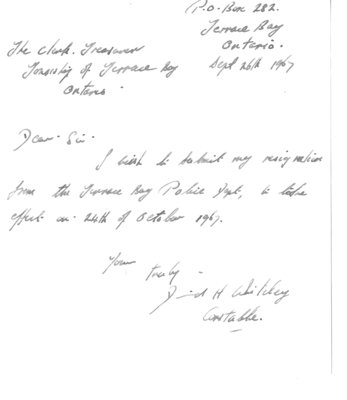 P.O. Box 282.
Terrace Bay
Ontario.
The Clerk. Treasurer
Township of Terrace Bay
Ontario.
Sept 26th 1967
Dear Sir.
I wish to submit my resignation
from the Terrace Bay Police Dept, to take
effect on 24th of October 1967.
Yours
truly
David H
Constable.